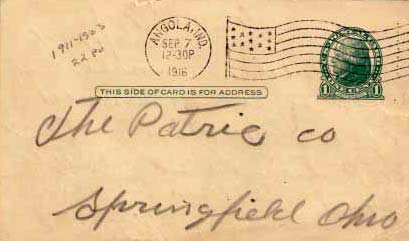 ANGOLA, IND.
SEP 7
12-30P
1916
1911-1963
22 Pu
1 1
THIS SIDE OF CARD IS FOR ADDRESS
The Patric co
Springfield Ohio